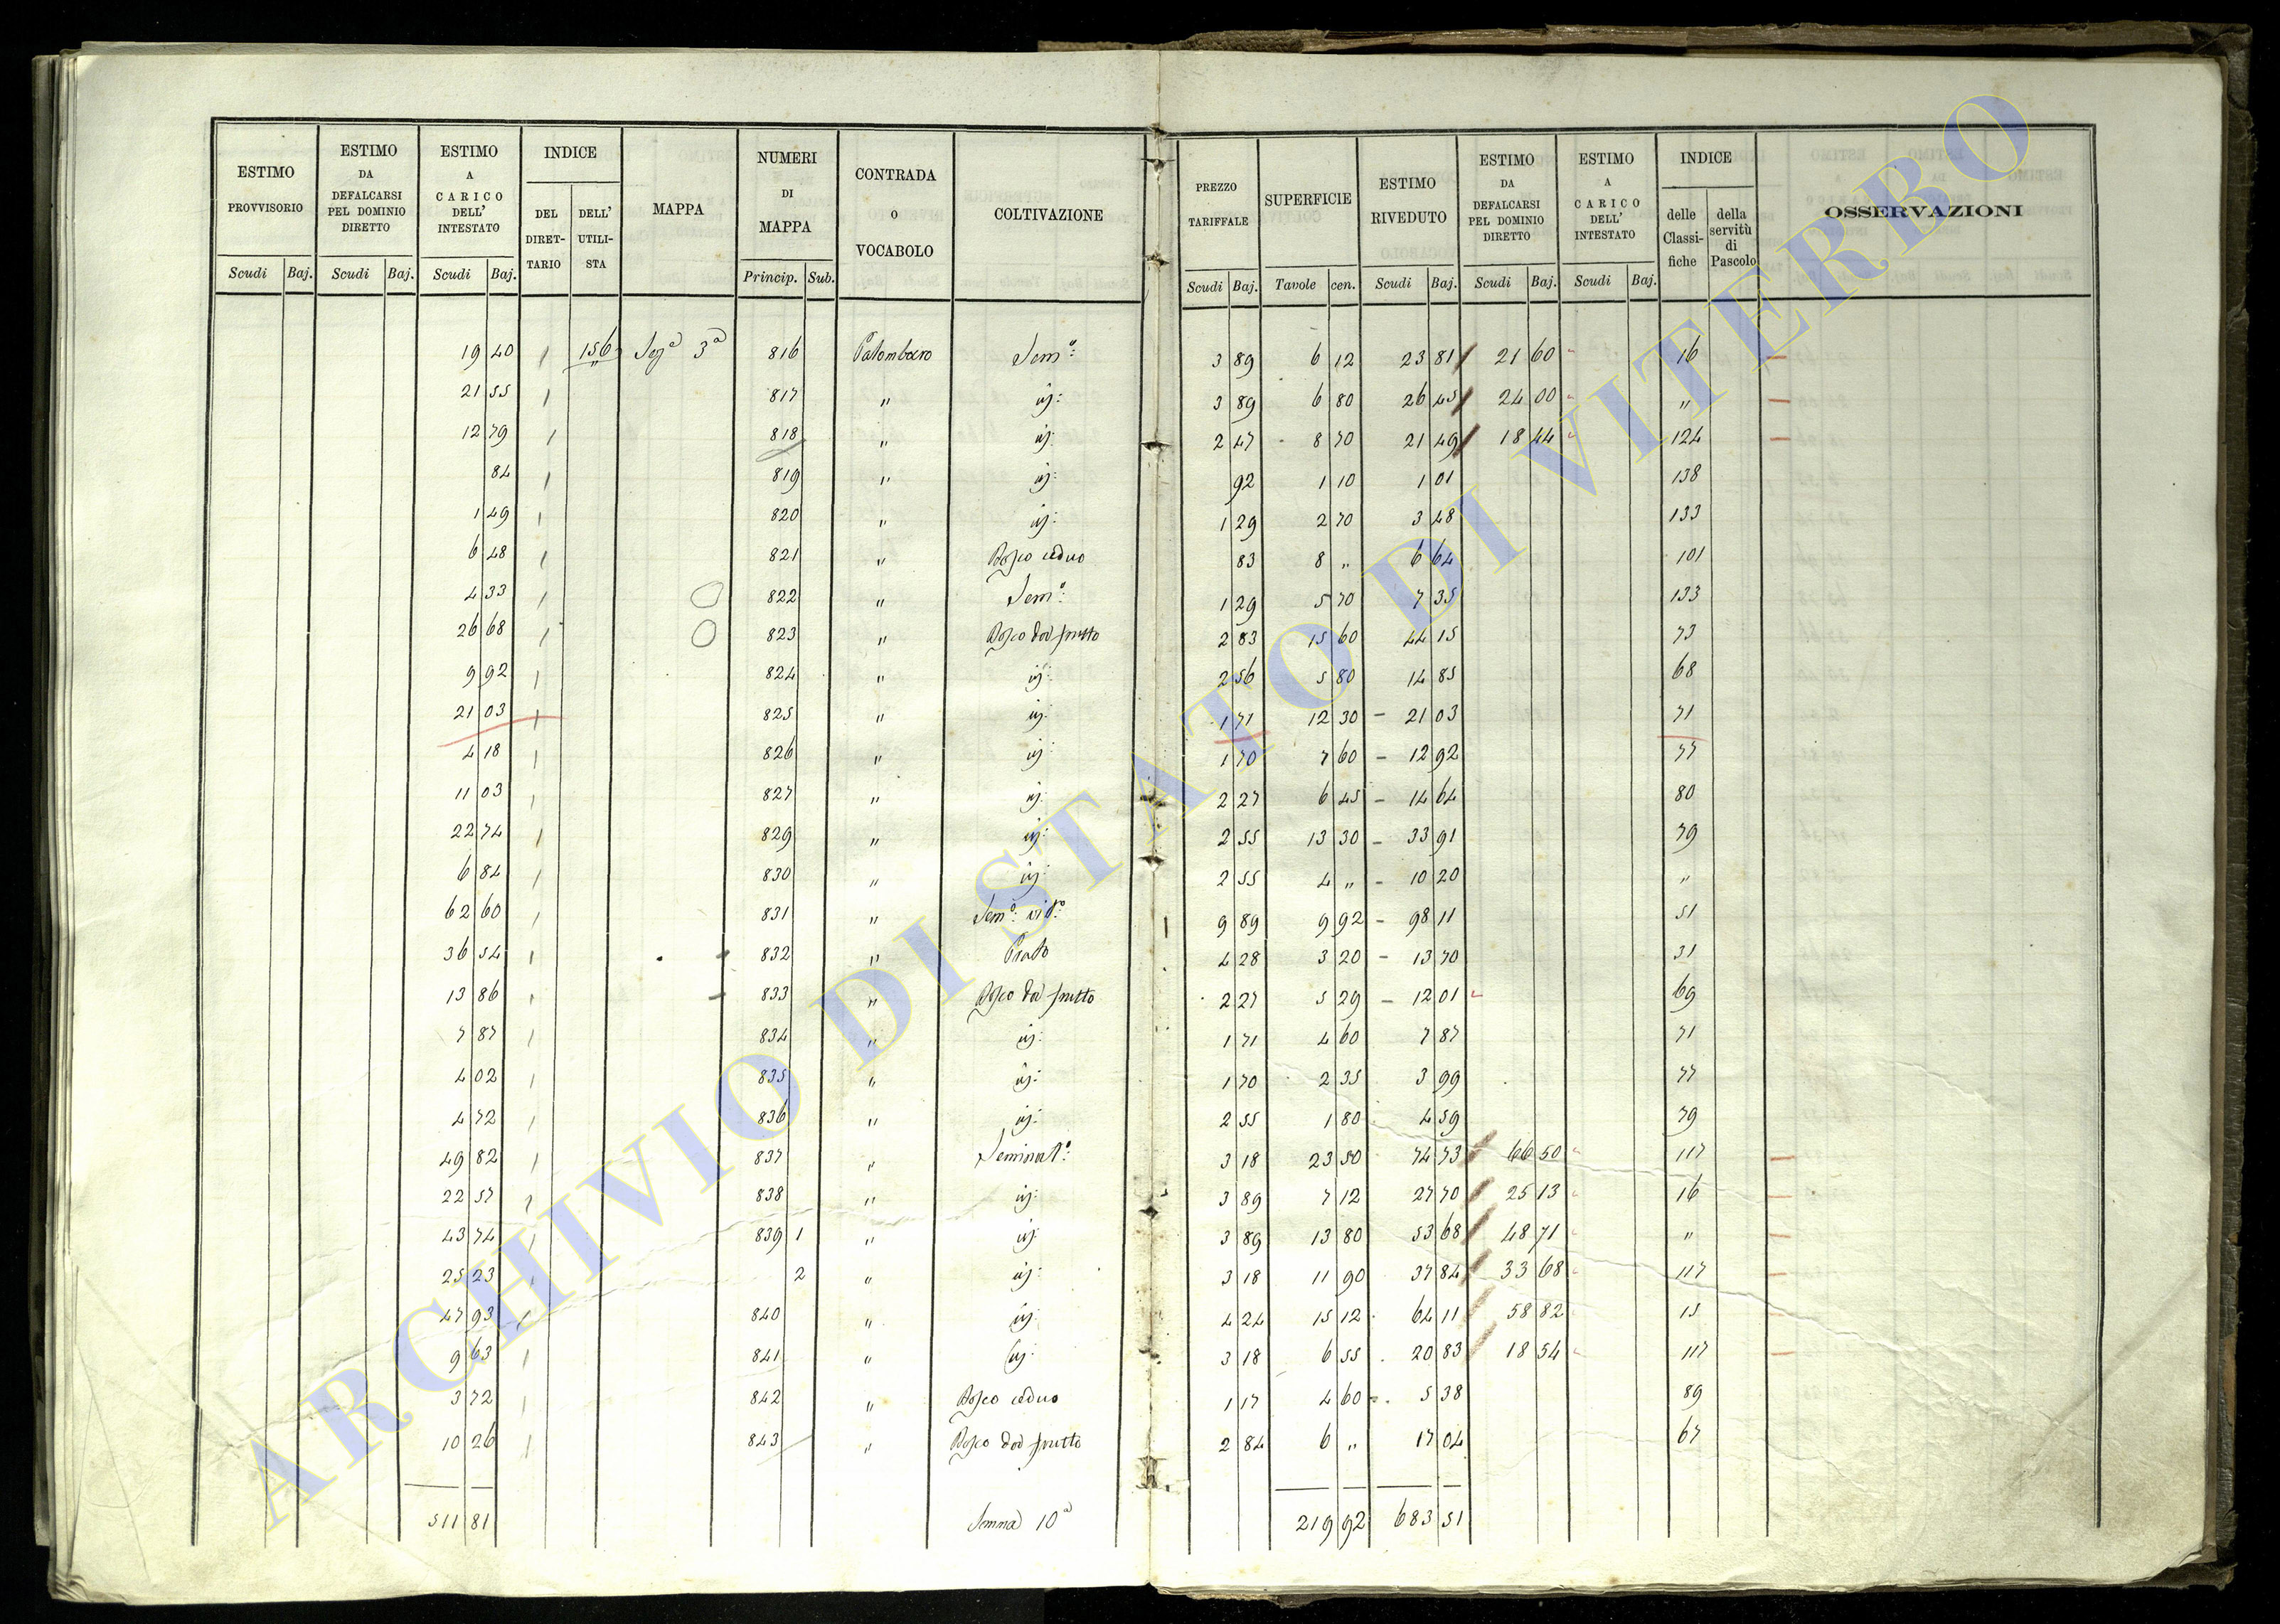 ESTIMO PROVVISORIO Scudi Baj. ESTIMO DA DEFALCARSI PEL DOMINIO DIRETTO Scudi Baj. ESTIMO A CARICO DELL' INTESTATO Scudi Baj. INDICE DEL DIRET-TARIO DELL' UTILI-STA MAPPA NUMERI DI MAPPA Princip. Sub. CONTRADA O VOCABOLO COLTIVAZIONE PREZZO TARIFFALE Scudi Baj. SUPERFICIE Tavole cen. ESTIMO RIVEDUTO Scudi Baj. ESTIMO DA DEFALCARSI PEL DOMINIO DIRETTO Scudi Baj. ESTIMO A CARICO DELL' INTESTATO Scudi Baj. INDICE delle Classi-fiche della servitù di Pascolo OSSERVAZIONI
19 40 / 156 Segª 3ª 816 Palombaro Semº: 3 89 6 12 23 81 21 60 16
21 55 / 817 " id: 3 89 6 80 26 45 24 00 "
12 79 / 818 " id: 2 47 8 70 21 49 18 44 124
84 / 819 " id: 92 1 10 1 01 138
1 49 / 820 " id: 1 29 2 70 3 48 133
6 48 / 821 " Bosco ceduo 83 8 " 6 64 101
4 33 / 822 " Semº: 1 29 5 70 7 35 133
26 68 / 823 " Bosco dol frutto 2 83 15 60 44 15 73
9 92 / 824 " id: 2 56 5 80 14 85 68
21 03 / 825 " id: 1 71 12 30 - 21 03 71
4 18 / 826 " id: 1 70 7 60 - 12 92 77
11 03 / 827 " id: 2 27 6 45 - 14 64 80
22 74 / 829 " id: 2 55 13 30 - 33 91 79
6 84 / 830 " id: 2 55 4 " - 10 20 "
62 60 / 831 " Semº: vitº: 9 89 9 92 - 98 11 51
36 54 / 832 " Prato 4 28 3 20 - 13 70 31
13 86 / 833 " Bosco dol frutto 2 27 5 29 - 12 01 69
7 87 / 834 " id: 1 71 4 60 7 87 71
4 02 / 835 " id: 1 70 2 35 3 99 77
4 72 / 836 " id: 2 55 1 80 4 59 79
49 82 / 837 " Seminatº: 3 18 23 50 74 73 66 50 117
22 57 / 838 " id: 3 89 7 12 27 70 25 13 16
43 74 / 839 1 " id: 3 89 13 80 53 68 48 71 "
25 23 / 2 " id: 3 18 11 90 37 84 33 68 117
47 93 / 840 " id: 4 24 15 12 64 11 58 82 15
9 63 / 841 " id: 3 18 6 55 20 83 18 54 117
3 72 / 842 " Bosco ceduo 1 17 4 60 - 5 38 89
10 26 / 843 " Bosco dol frutto 2 84 6 " 17 04 67
511 81 Somma 10ª 219 92 683 51
ARCHIVIO DI STATO DI VITERBO